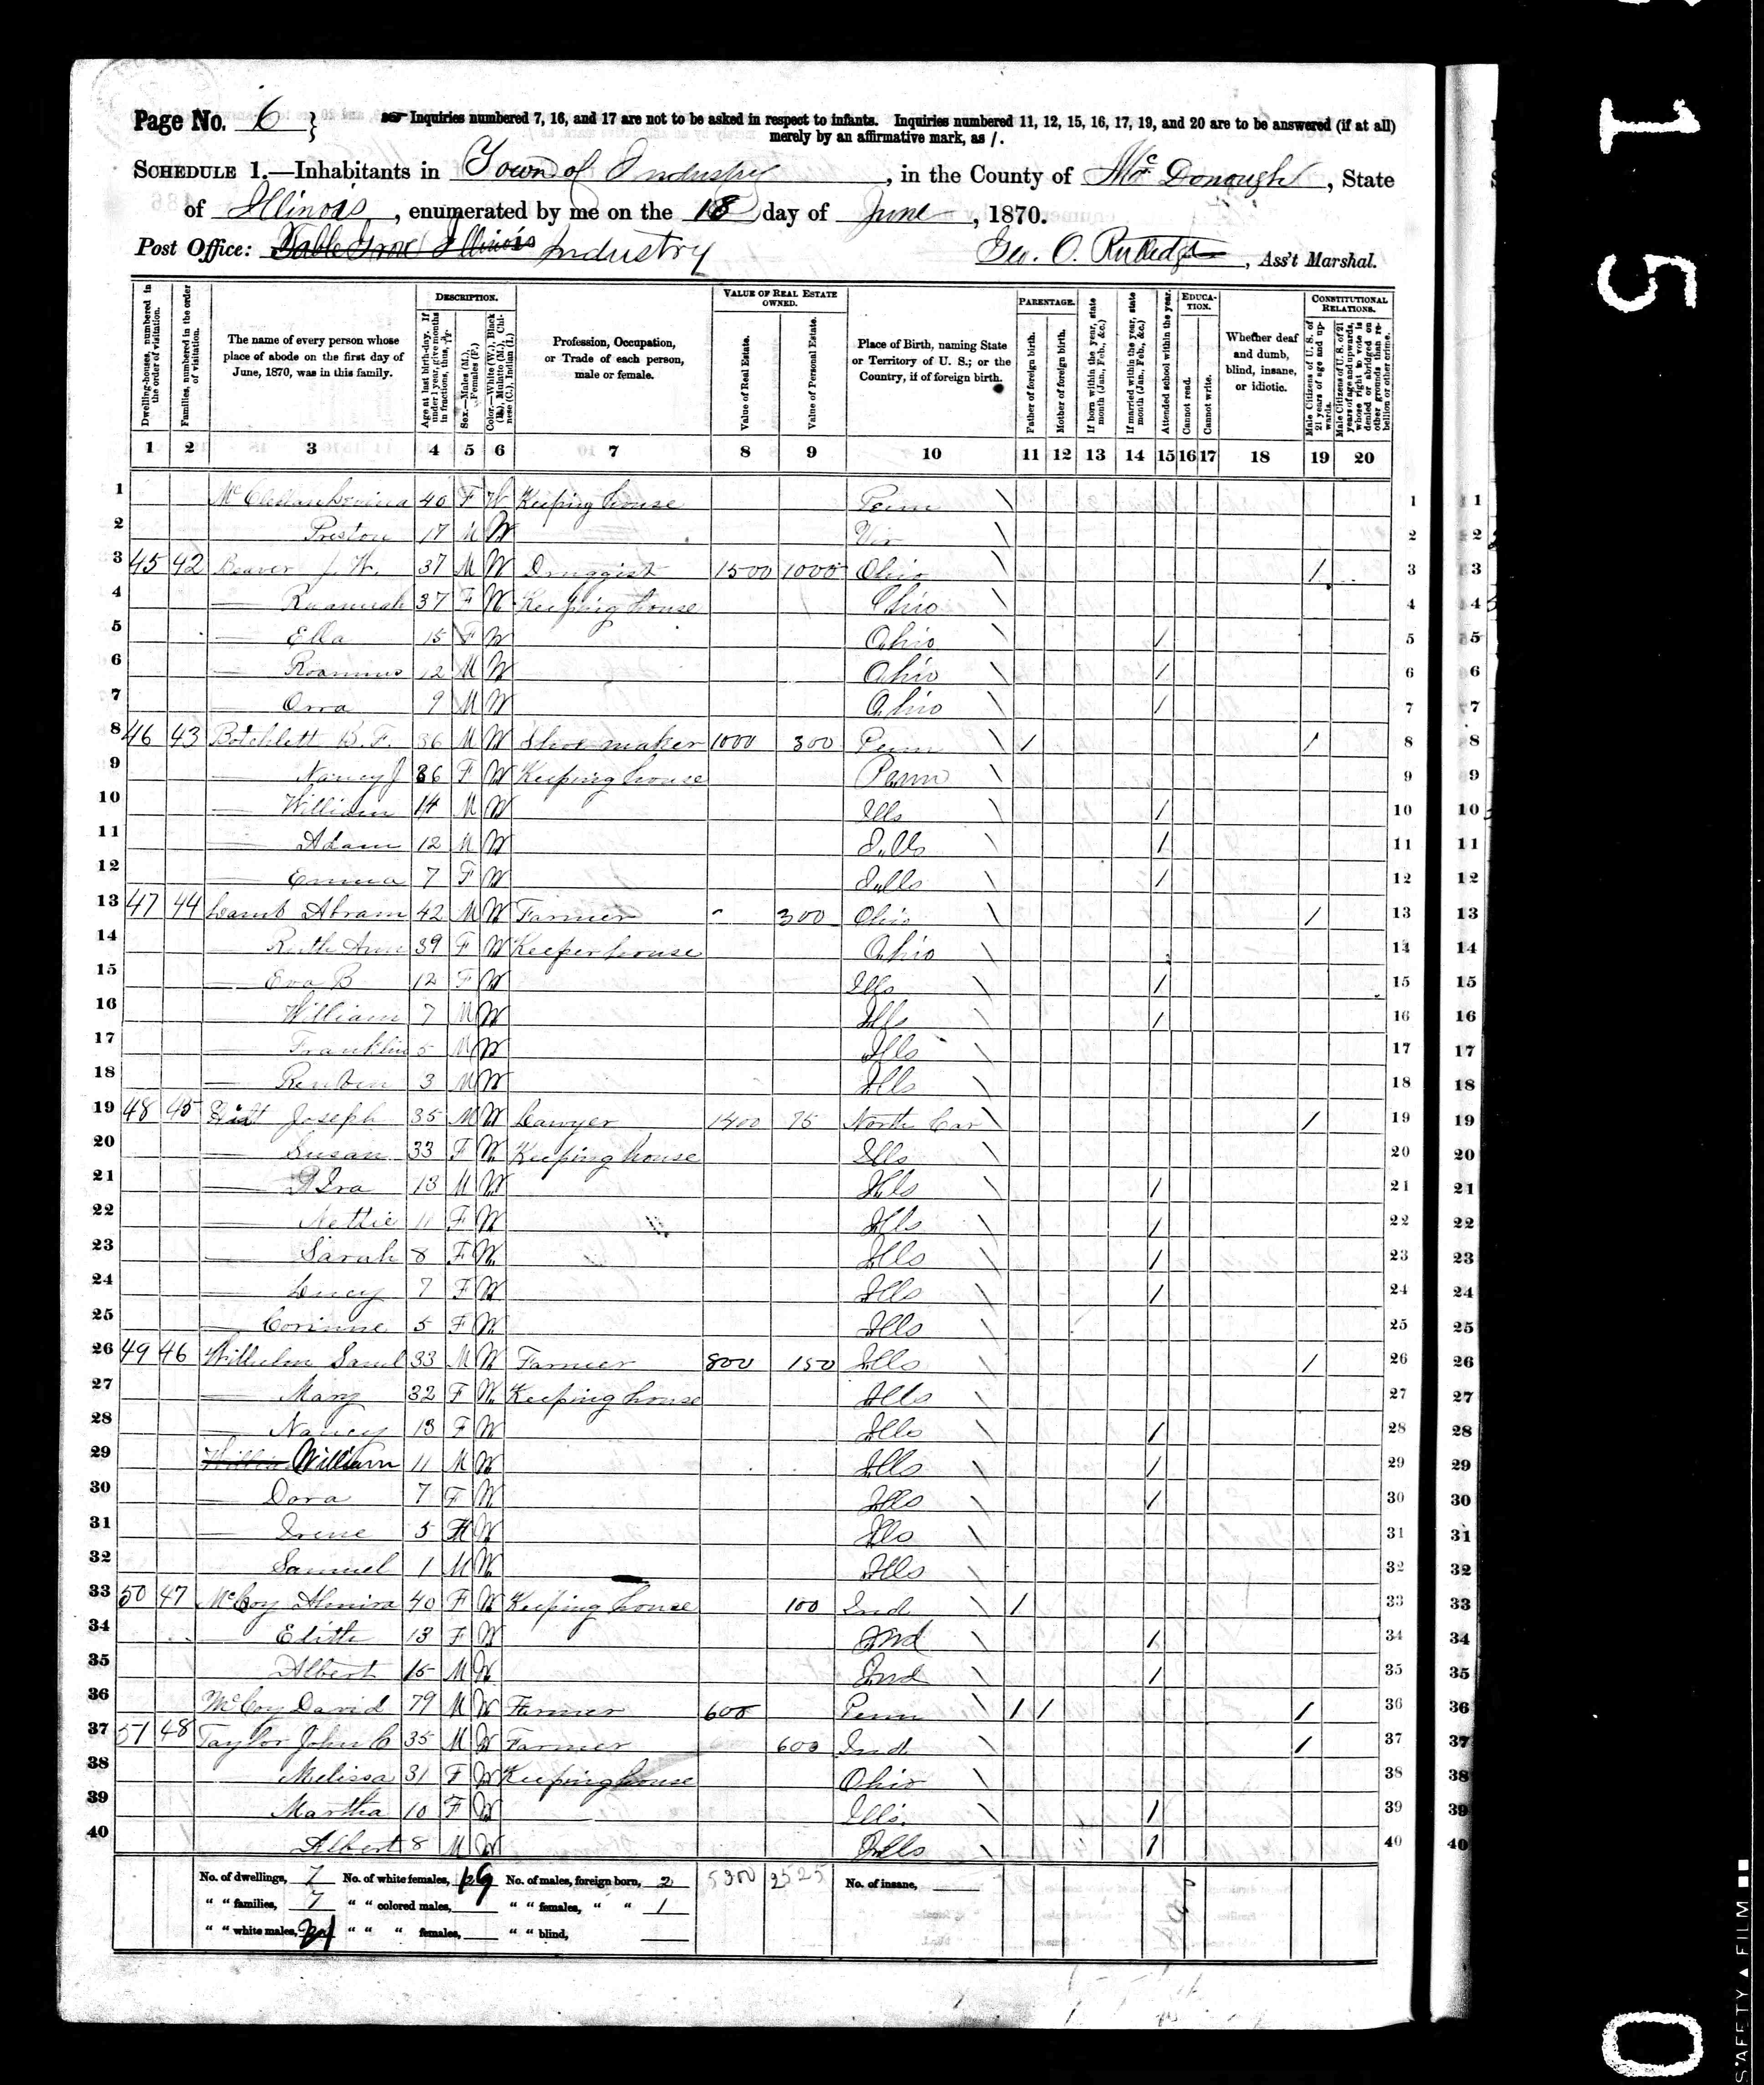 Page No. 6 }
Inquiries numbered 7, 16, and 17 are not to be asked in respect to infants. Inquiries numbered 11, 12, 15, 16, 17, 19, and 20 are to be answered (if at all)
merely by an affirmative mark, as /.
SCHEDULE 1.—Inhabitants in Town of Industry, in the County of McDonough, State
of Illinois, enumerated by me on the 18 day of June, 1870.
Post Office: Industry Geo. O. Rutledge, Ass't Marshal.
Dwelling-houses, numbered in the order of visitation.
Families, numbered in the order of visitation.
The name of every person whose place of abode on the first day of June, 1870, was in this family.
DESCRIPTION.
Age at last birth-day. If under 1 year, give months in fractions, thus, 3/12.
Sex.—Males (M.), Females (F.)
Color.—White (W.), Black (B.), Mulatto (M.), Chinese (C.), Indian (I.)
Profession, Occupation, or Trade of each person, male or female.
VALUE OF REAL ESTATE OWNED.
Value of Real Estate.
Value of Personal Estate.
Place of Birth, naming State or Territory of U. S.; or the Country, if of foreign birth.
PARENTAGE.
Father of foreign birth.
Mother of foreign birth.
If born within the year, state month (Jan., Feb., &c.)
If married within the year, state month (Jan., Feb., &c.)
Attended school within the year.
EDUCATION.
Cannot read.
Cannot write.
Whether deaf and dumb, blind, insane, or idiotic.
CONSTITUTIONAL RELATIONS.
Male Citizens of U. S. of 21 years of age and upwards.
Male Citizens of U. S. of 21 years of age and upwards, whose right to vote is denied or abridged on other grounds than rebellion or other crime.
1 2 3 4 5 6 7 8 9 10 11 12 13 14 15 16 17 18 19 20
1 40 F W Keeping house Penn \ 1
2 Preston 17 M W Vir \ 2
3 45 42 Beaver J. W. 37 M W Druggist 1500 1000 Ohio \ / 3
4 37 F W Keeping house Ohio \ 4
5 Ella 15 F W Ohio \ / 5
6 12 M W Ohio \ / 6
7 Orra 9 M W Ohio \ / 7
8 46 43 B. F. 36 M W Shoe maker 1000 300 Penn / / 8
9 Nancy J 36 F W Keeping house Penn \ 9
10 William 14 M W Ills \ / 10
11 Adam 12 M W Ills \ / 11
12 Emma 7 F W Ills \ / 12
13 47 44 Lamb Abram 42 M W Farmer - 300 Ohio \ / 13
14 Ruth Ann 39 F W Keeper house Ohio \ 14
15 Eva B 12 F W Ills \ / 15
16 William 7 M W Ills \ / 16
17 Franklin 5 M W Ills \ 17
18 Reuben 3 M W Ills \ 18
19 48 45 Joseph 35 M W Lawyer 1400 75 North Car \ / 19
20 Susan 33 F W Keeping house Ills \ 20
21 Ira 13 M W Ills \ / 21
22 Nettie 11 F W Ills \ / 22
23 Sarah 8 F W Ills \ / 23
24 Lucy 7 F W Ills \ / 24
25 Corinne 5 F W Ills \ 25
26 49 46 Wilhelm Saml 33 M W Farmer 800 150 Ills \ / 26
27 Mary 32 F W Keeping house Ills \ 27
28 Nancy 13 F W Ills \ / 28
29 William 11 M W Ills \ / 29
30 Dora 7 F W Ills \ / 30
31 Irene 5 F W Ills \ 31
32 Samuel 1 M W Ills \ 32
33 50 47 McCoy Almira 40 F W Keeping house 100 Ind \ / 33
34 Edith 13 F W Ind \ / 34
35 Albert 15 M W Ind \ / 35
36 McCoy David 79 M W Farmer 600 Penn / / / 36
37 51 48 Taylor John C 35 M W Farmer 600 Ind \ / 37
38 Melissa 31 F W Keeping house Ohio \ 38
39 Martha 10 F W Ills. \ / 39
40 Albert 8 M W Ills \ / 40
No. of dwellings, 7 No. of white females, 19 No. of males, foreign born, 2 5300 2525 No. of insane,
" " families, 7 " " colored males, " " females, " " 1
" " white males, 21 " " " females, " " blind,
1 5
0
SAFETY ▲ FILM